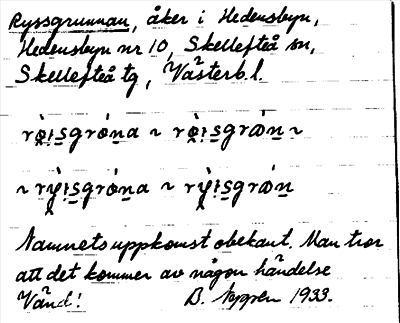 Ryssgrunnan, åker i Hedensbyn,
Hedensbyn nr 10, Skellefteå sn,
Skellefteå tg, Västerb.l.
rø̀i̯sgrǿna ~ rø̀i̯sgrǿn ~
~ rỳi̯sgrǿna ~ rỳi̯sgrǿn
Namnets uppkomst obekant. Man tror
att det kommer av någon händelse
Vänd! B. 1933.